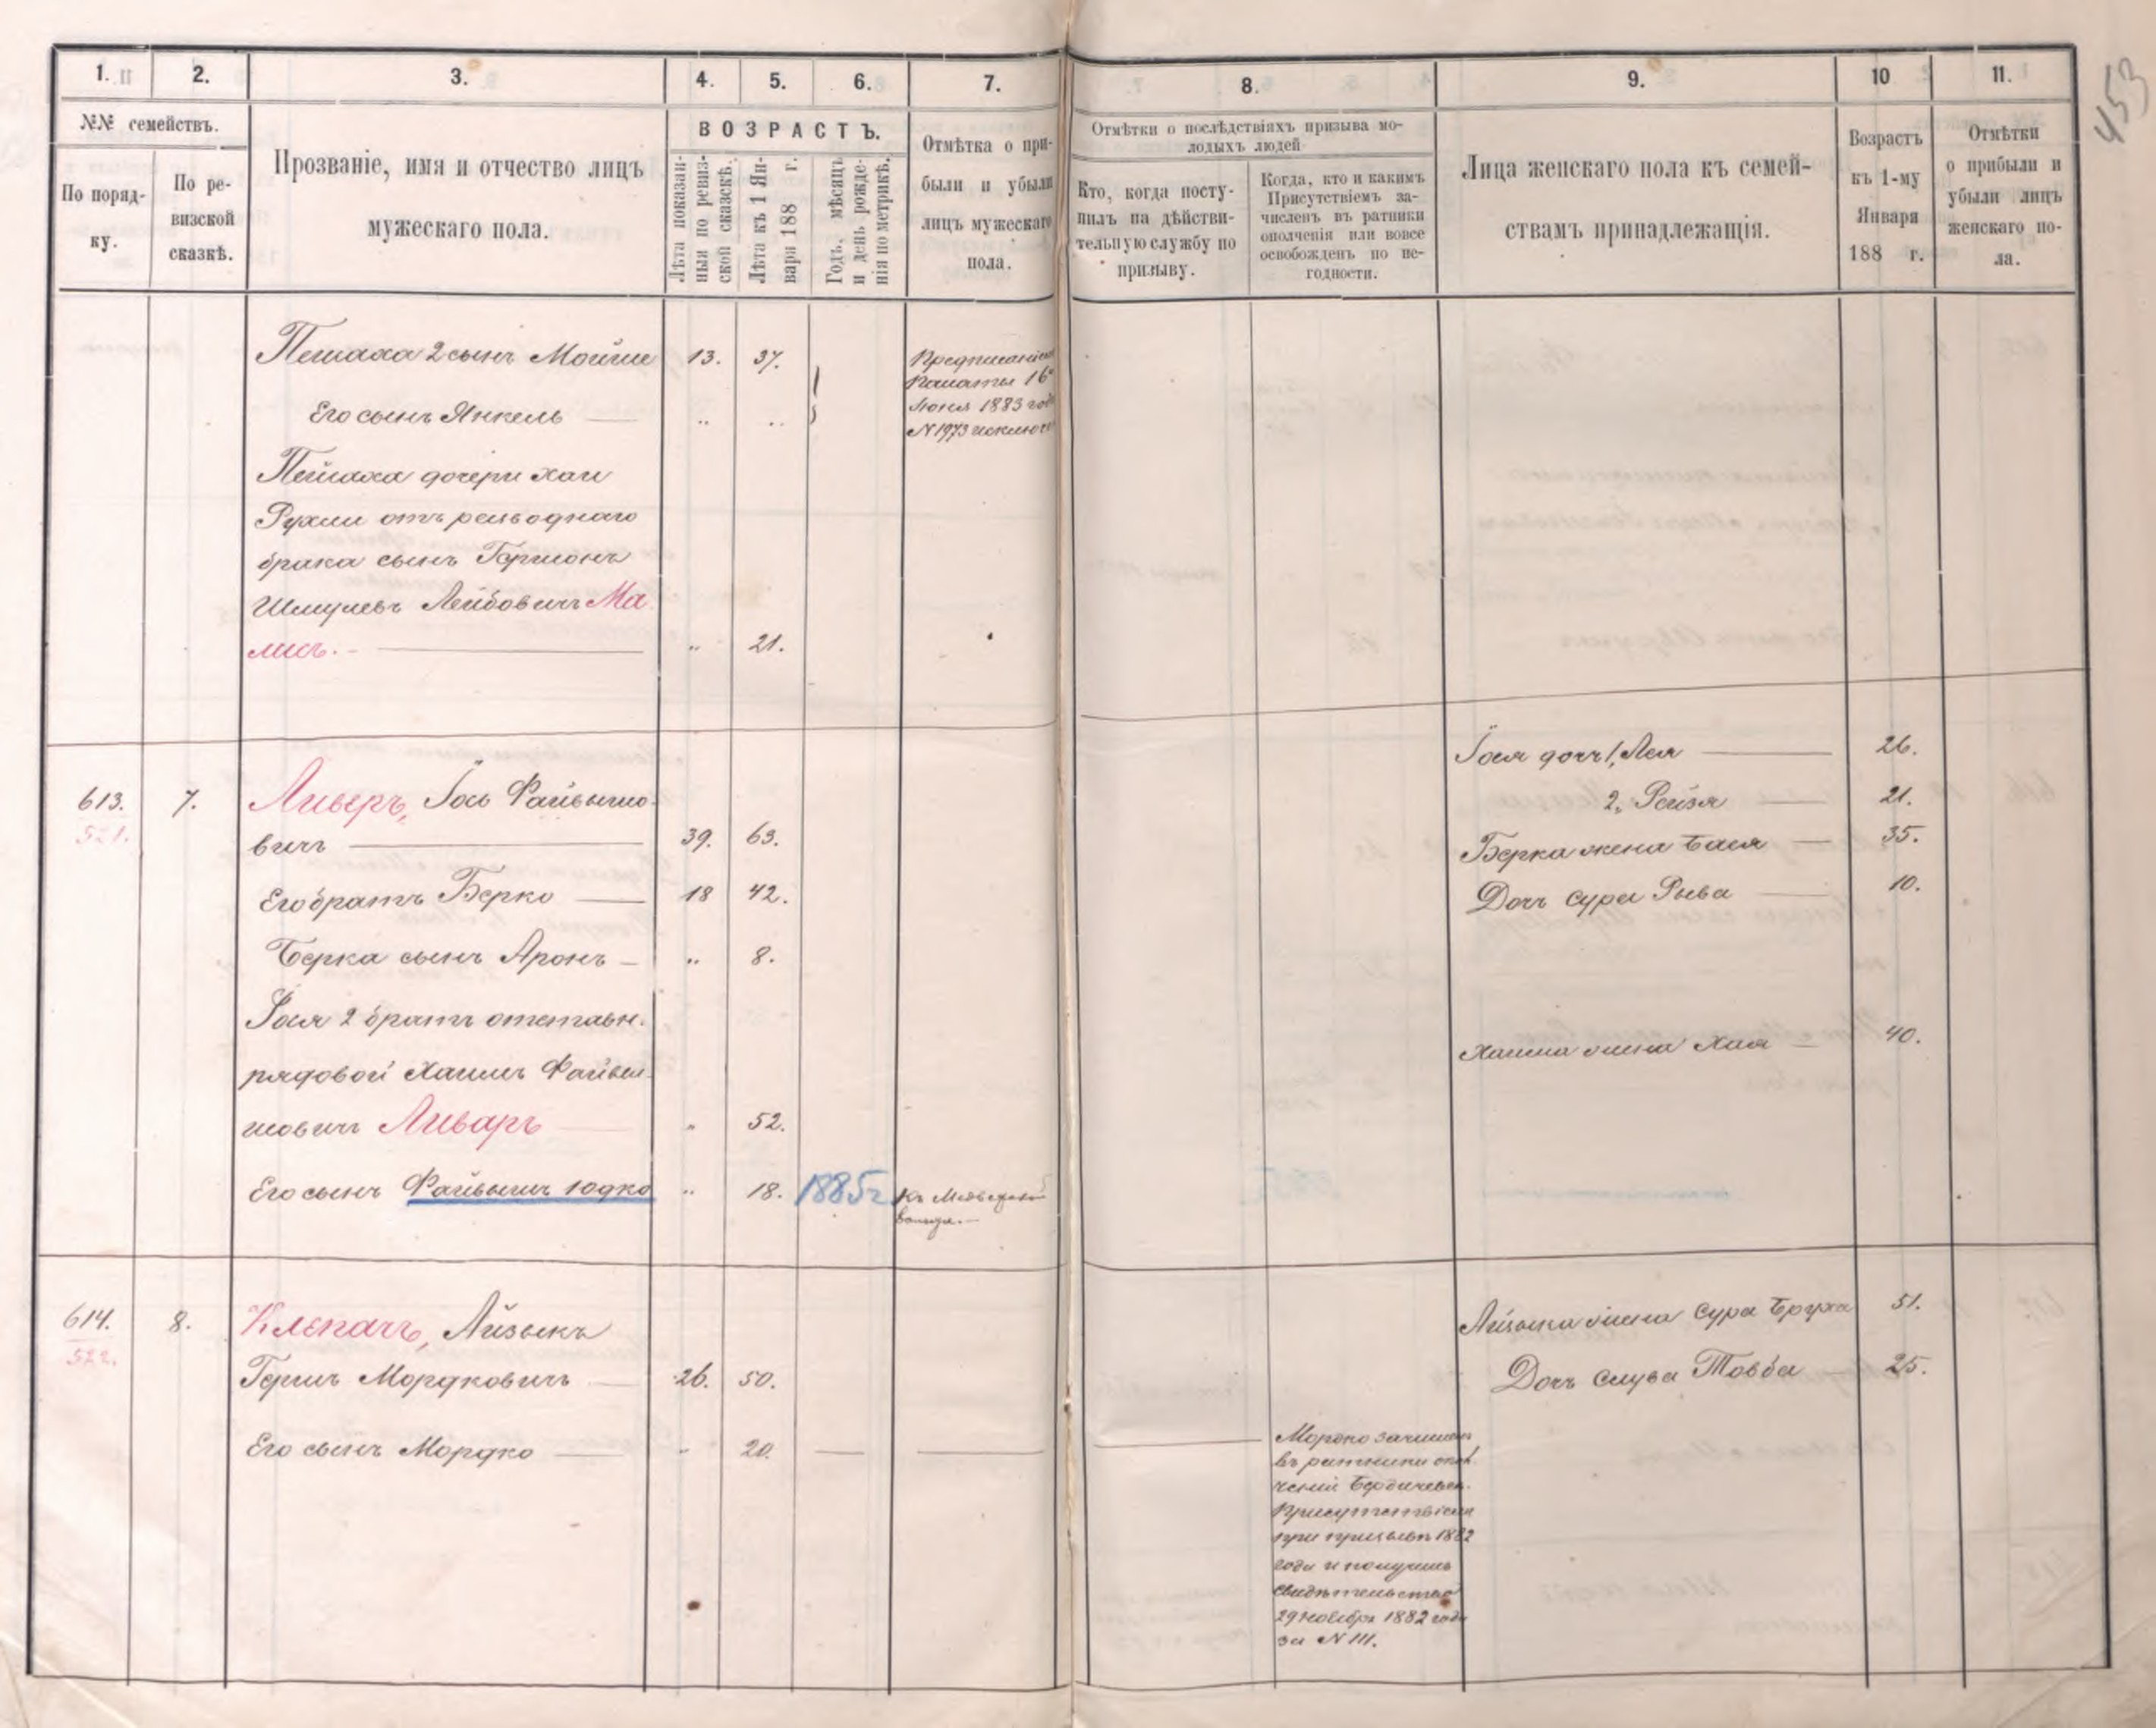 453
1.
2.
3.
4.
5.
6.
7.
8.
9.
10
11.
№№ семействъ.
По поряд-
ку.
По ре-
визской
сказкѣ.
Прозваніе, имя и отчество лицъ
мужескаго пола.
ВОЗРАСТЪ.
Лѣта показан-
ныя по ревиз-
ской сказкѣ.
Лѣта къ 1 Ян-
варя 188 г.
Годъ, мѣсяцъ
и день рожде-
нія по метрикѣ.
Отмѣтка о при-
были и убыли
лицъ мужескаго
пола.
Отмѣтки о послѣдствіяхъ призыва мо-
лодыхъ людей
Кто, когда посту-
пилъ на дѣйстви-
тельную службу по
призыву.
Когда, кто и какимъ
Присутствіемъ за-
численъ въ ратники
ополченія или вовсе
освобожденъ по не-
годности.
Лица женскаго пола къ семей-
ствамъ принадлежащія.
Возрастъ
къ 1-му
Января
188 г.
Отмѣтки
о прибыли и
убыли лицъ
женскаго по-
ла.
Пейсаха 2 сынъ Мойше 13. 37.
Его сынъ Янкель
Предписаніемъ
Палаты 16
Іюня 1883 года
N 1973 исключ
Пейсаха дочери Хаи
Рухли отъ
брака сынъ Гершонъ
Шмулевъ Лейбовичъ Ма
лисъ. 21.
613. 7. Ливеръ, Іось Файвишо-
521.
вичъ 39. 63.
Его братъ Берко 18 42.
Берка сынъ Аронъ 8.
Іося 2 братъ отставн.
рядовой Хаимъ Файви-
шовичъ Ливаръ 52.
Его сынъ Файвишъ Юдко 18. 1885г.
Къ
Іося дочь 1, Лея 26.
2, Рейзя 21.
Берка жена Бася 35.
Дочь Сура Рыва 10.
Хаима жена Хая 40.
614. 8. Клепачъ, Айзыкъ
522.
Гершъ Мордковичъ 26. 50.
Его сынъ Мордко 20.
Мордко зачисленъ
въ ратники опол
ченія Бердичевск.
Присутствіемъ
при призывѣ 1882
года и получилъ
свидѣтельство
29 Ноября 1882 года
за N 111.
Айзыка жена Сура Бруха 51.
Дочь Слува Товба 25.